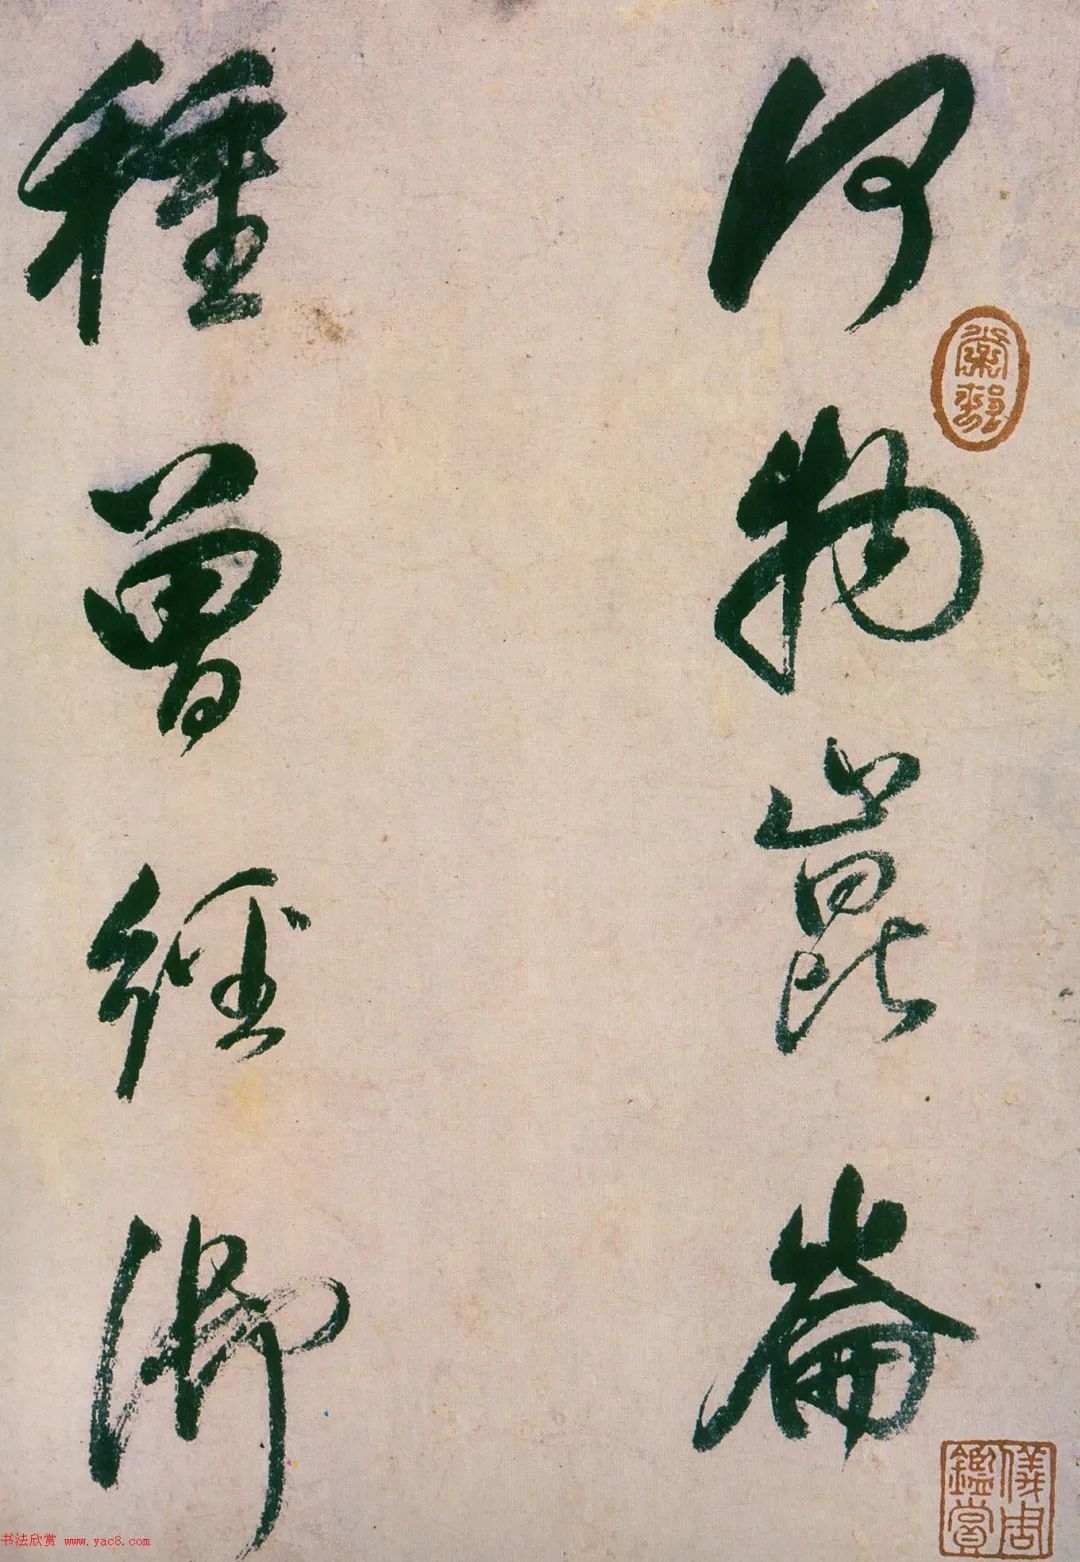 何物崑崙
種曾經御
儀周
鑑賞
书法欣赏 www.yac8.com